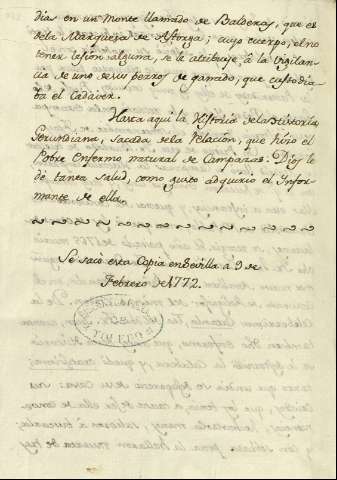 dias en un Monte llamado de Balderas, que es
dela Marquesa de Astorga; cuyo cuerpo, el no
tener lesion alguna, se le atribuje, â la Vigilan-
cia de uno de sus perros de ganado, que custodia
ba el Cadaver.
Hasta aqui la Historia dela
Gerundiana, sacada dela Relacion, que hizo el
Pobre Enfermo natural de Campazas. Dios le
de tanta salud, como gusto adquirio el Infor-
mante de ella.
Se sacó esta Copia en Sevilla a 9 de
Febrero de 1772.